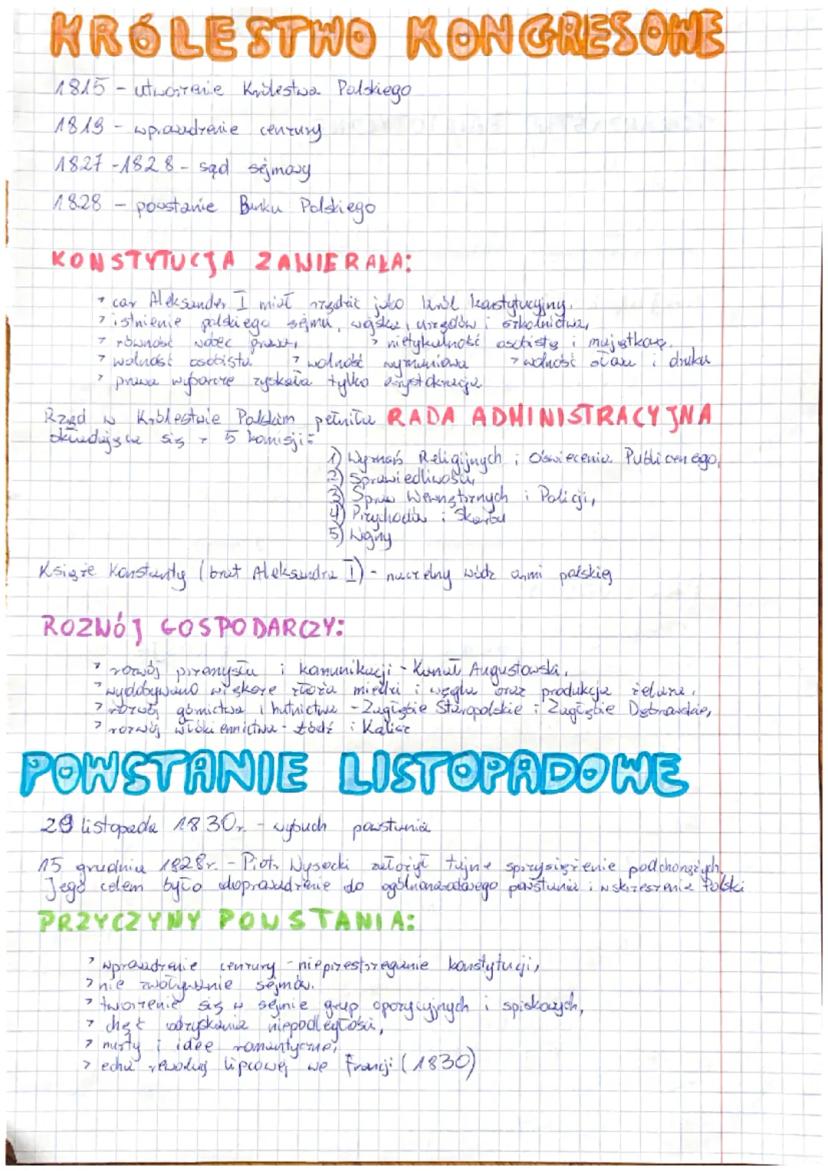 KRÓLESTWO KONGRESOWE
1815 - utworzenie Królestwa Polskiego
1819 - wprowadzenie cenzury
1827-1828 - sąd sejmowy
1828 - powstanie Banku Polskiego
KONSTYTUCJA ZAWIERAŁA:
> car Aleksander I miał rządzić jako król konstytucyjny,
> istnienie polskiego sejmu, wojska, urzędów i szkolnictwa,
> równość wobec prawa, > nietykalność osobistą i majątkową,
> wolność osobistą > wolność wyznaniowa > wolność słowa i druku
> prawa wyborcze zyskała tylko arystokracja
Rząd w Królestwie Polskim pełniła RADA ADMINISTRACYJNA
składająca się z 5 komisji:
1) Wyznań Religijnych i Oświecenia Publicznego,
2) Sprawiedliwości,
3) Spraw Wewnętrznych i Policji,
4) Przychodów i Skarbu
5) Wojny
Książe Konstanty (brat Aleksandra I) - naczelny wódz armi polskiej
ROZWÓJ GOSPODARCZY:
> rozwój przemysłu i komunikacji - Kanał Augustowski,
> wydobywano większe złoża miedzi i węgla oraz produkcja żelaza,
> rozwój górnictwa i hutnictwa - Zagłębie Staropolskie i Zagłębie Dąbrowskie,
> rozwój włókiennictwa - Łódź i Kalisz
POWSTANIE LISTOPADOWE
29 listopada 1830r. - wybuch powstania
15 grudnia 1828r. - Piotr Wysocki założył tajne sprzysiężenie podchorążych.
Jego celem było doprowadzenie do ogólnonarodowego powstania i wskrzeszenie Polski
PRZYCZYNY POWSTANIA:
> wprowadzenie cenzury - nieprzestrzeganie konstytucji,
> nie zwoływanie sejmów.
> tworzenie się w sejmie grup opozycyjnych i spiskowych,
> chęć odzyskania niepodległości,
> nurty i idee romantyczne,
> echa rewolucji lipcowej we Francji (1830)